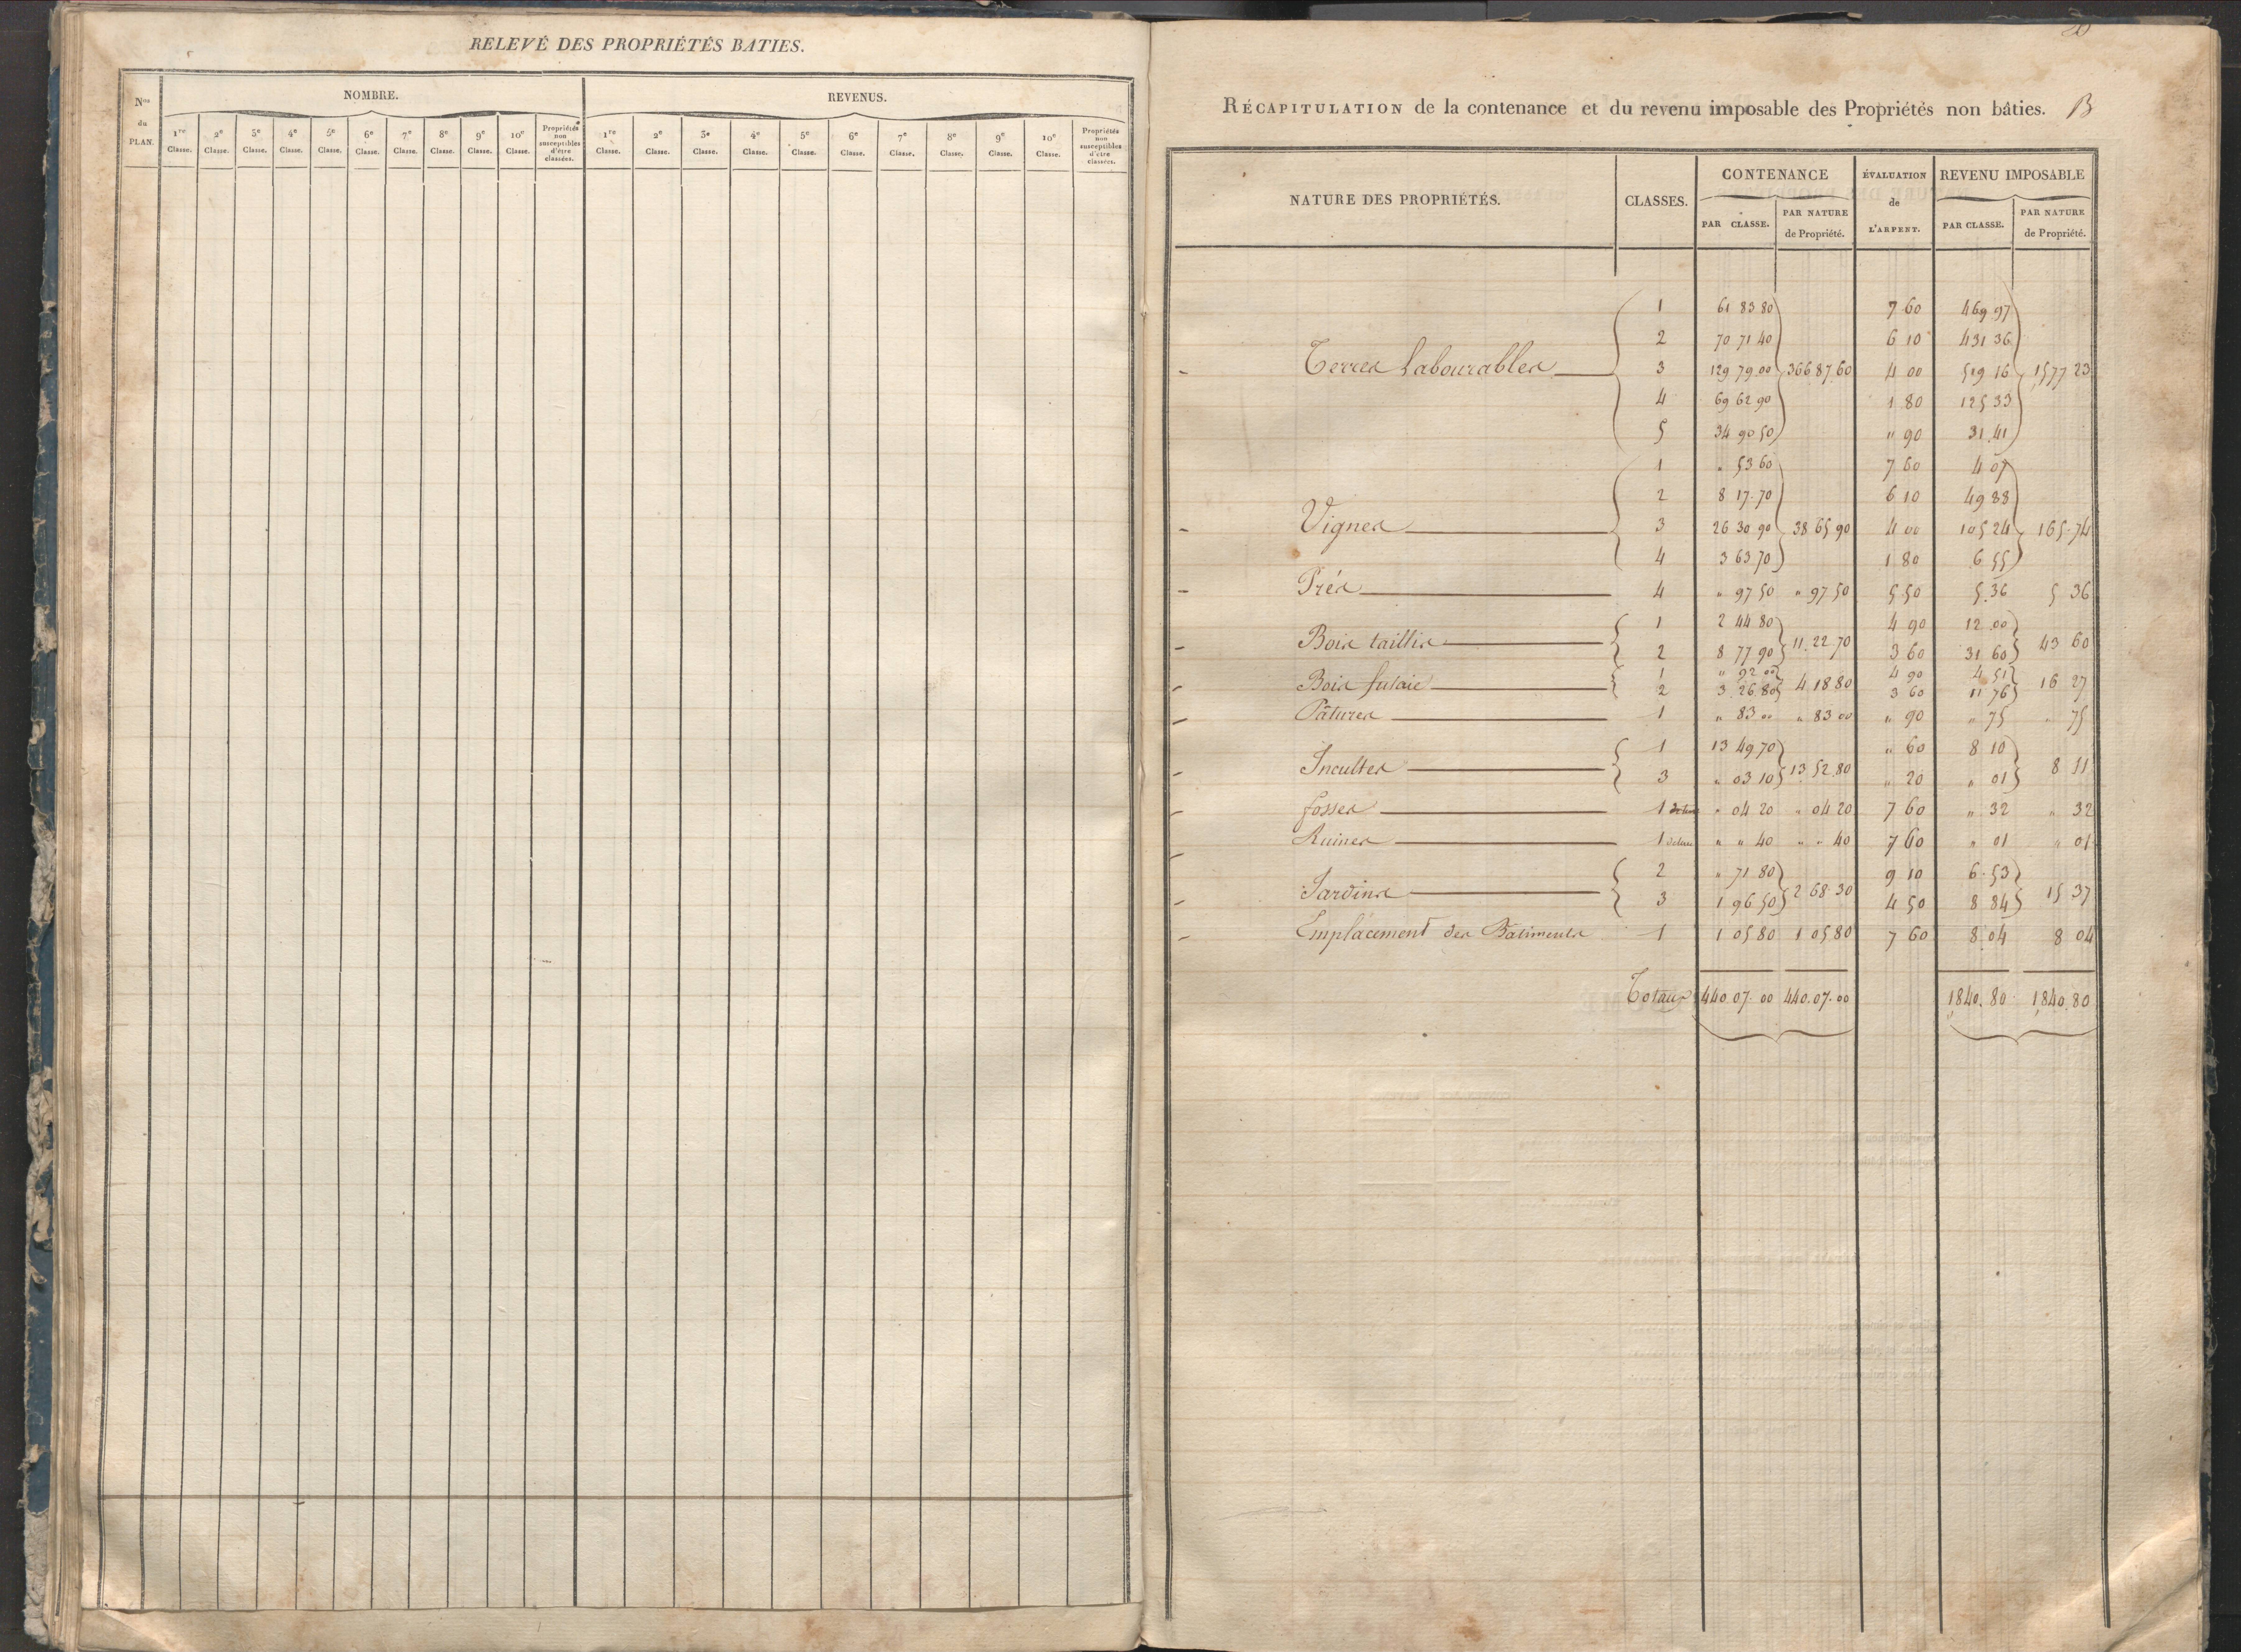 RELEVÉ DES PROPRIÉTÉS BATIES.
Nos du PLAN.
NOMBRE.
REVENUS.
1re Classe. 2e Classe. 3e Classe. 4e Classe. 5e Classe. 6e Classe. 7e Classe. 8e Classe. 9e Classe. 10e Classe. Propriétés non susceptibles d'être classées.
1re Classe. 2e Classe. 3e Classe. 4e Classe. 5e Classe. 6e Classe. 7e Classe. 8e Classe. 9e Classe. 10e Classe. Propriétés non susceptibles d'être classées.
20
RÉCAPITULATION de la contenance et du revenu imposable des Propriétés non bâties. B
NATURE DES PROPRIÉTÉS. CLASSES. CONTENANCE ÉVALUATION de L'ARPENT. REVENU IMPOSABLE
PAR CLASSE. PAR NATURE de Propriété. PAR CLASSE. PAR NATURE de Propriété.
1 61 83 80 7 60 469 97
2 70 71 40 6 10 431 36
Terres labourables 3 129 79 00 366 87 60 4 00 519 16 1577 23
4 69 62 90 1 80 125 33
5 34 90 50 " 90 31 41
1 " 53 60 7 60 4 07
2 8 17 70 6 10 49 88
Vignes 3 26 30 90 38 65 90 4 00 105 24 165 74
4 3 63 70 1 80 6 55
Prés 4 " 97 50 " 97 50 5 50 5 36 5 36
1 2 44 80 4 90 12 00
Bois taillis 2 8 77 90 11 22 70 3 60 31 60 43 60
1 " 92 00 4 90 4 51
Bois futaie 2 3 26 80 4 18 80 3 60 11 76 16 27
Pâtures 1 " 83 00 " 83 00 " 90 " 75 " 75
1 13 49 70 " 60 8 10
Incultes 3 " 03 10 13 52 80 " 20 " 01 8 11
fosses 1 " 04 20 " 04 20 7 60 " 32 " 32
Ruines 1 " " 40 " " 40 7 60 " 01 " 01
2 " 71 80 9 10 6 53
Jardins 3 1 96 50 2 68 30 4 50 8 84 15 37
Emplacement des Bâtiments 1 1 05 80 1 05 80 7 60 8 04 8 04
Totaux 440 07 00 440 07 00 1840 80 1840 80